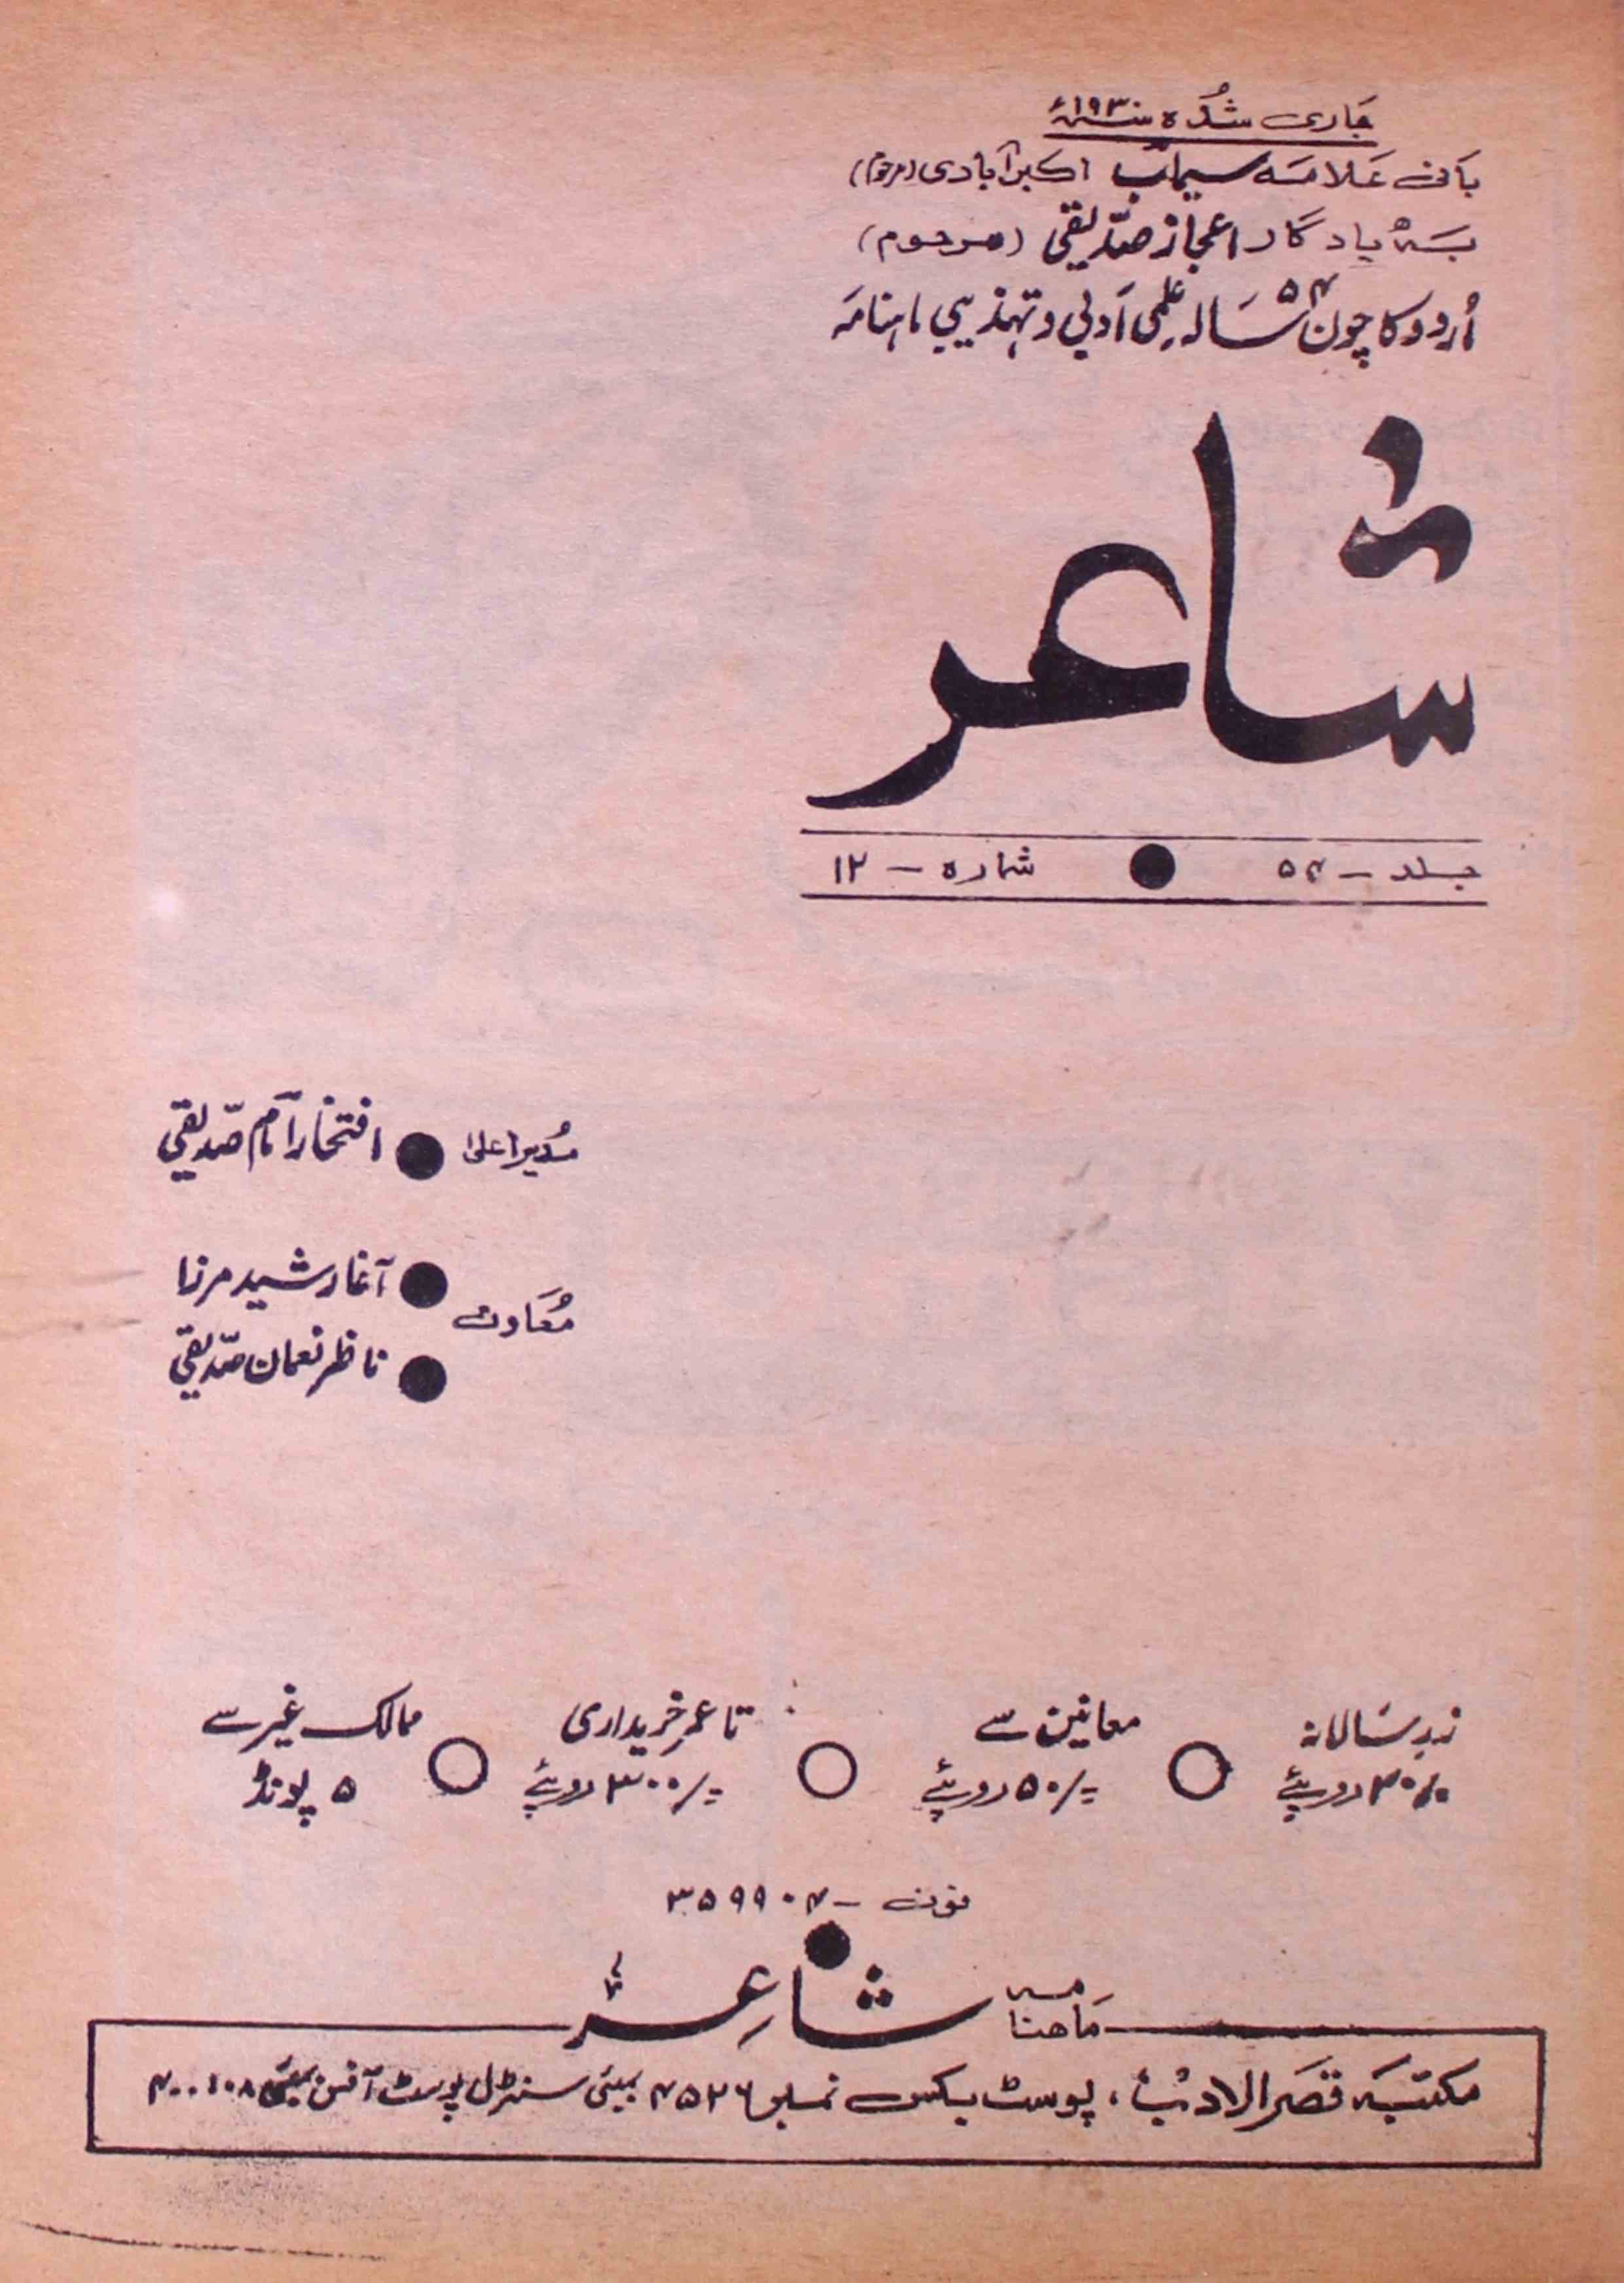 جاری شُدہ سنہ ۱۹۳۰ء
بانی علامہ سیماب اکبرآبادی (مرحوم)
بہ یادگار اعجاز صدّیقی (مرحوم)
اُردو کا چون ۵۴ سالہ علمی ادبی و تہذیبی ماہنامہ
شاعر
جلد – ۵۴ ● شمارہ – ۱۲
مُدیر اعلیٰ ● افتخار امام صدّیقی
مُعاون ● آغا رشید مرزا
● ناظر نعمان صدّیقی
زرِ سالانہ ○ معاونین سے ○ تا عمر خریداری ○ ممالک غیر سے
۴۰/- روپئے ۵۰/- روپئے ۳۰۰/- روپئے ۵ پونڈ
فون – ۳۵۹۹۰۴
●
ماہنامہ شاعر
مکتبہ قصرالادب، پوسٹ بکس نمبر ۴۵۲۶ بمبئی سنٹرل پوسٹ آفس بمبئی ۴۰۰۱۰۸